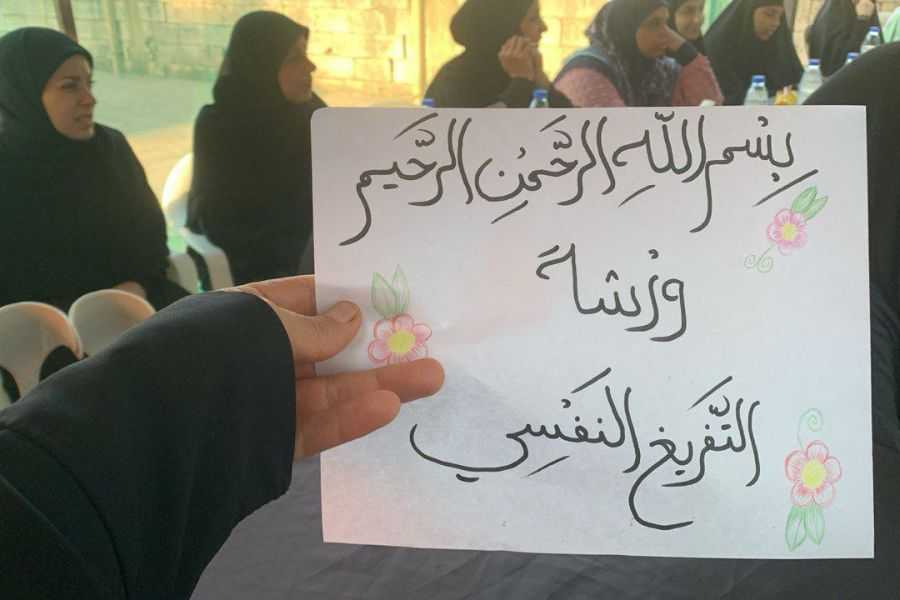 بِسْمِ اللّهِ الرَّحْمٰنِ الرَّحَيم
وزشة
التَّفْريغ النفْسِي